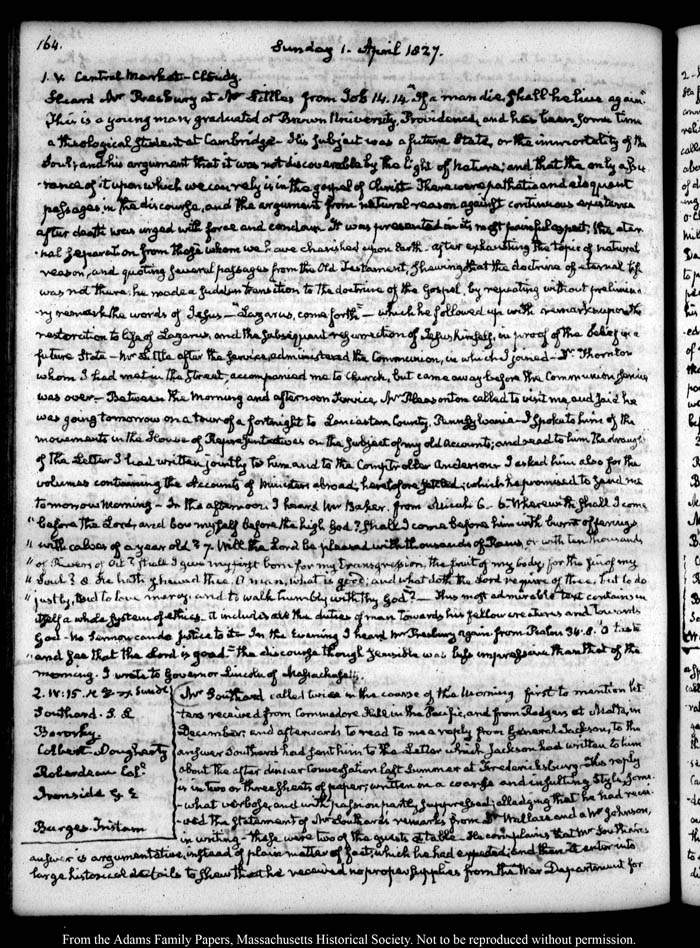 164.
Sunday 1. April 1827.
1. V. Central Market — Cloudy.
Heard Mr Presbury at Mr Little's from Job 14.14. "If a man die, shall he live again"
This is a young man, graduated at Brown University, Providence, and has been some time
a theological student at Cambridge — His subject was a future State, or the immortality of the
Soul; and his argument that it was not discoverable by the light of Nature; and that the only assu
-rance of it upon which we can rely is in the gospel of Christ. There were pathetic and eloquent
passages in the discourse, and the argument from natural reason against continuous existence
after death was urged with force and candour. It was presented in its most painful aspect, the eter
-nal separation from those whom we have cherished upon Earth — after exhausting the topic of natural
reason, and quoting several passages from the Old Testament, shewing that the doctrine of eternal life
was not there; he made a sudden transition to the doctrine of the Gospel, by repeating without prelimina
-ry remark the words of Jesus — "Lazarus, come forth" — which he followed up with remarks upon the
restoration to life of Lazarus, and the subsequent resurrection of Jesus himself, in proof of the belief in a
future State — Mr Little after the service, administered the Communion, in which I joined — Dr Thornton
whom I had met in the Street, accompanied me to Church, but came away before the Communion Service
was over — Between the Morning and afternoon Service, Mr Pleasonton called to visit me, and said he
was going tomorrow on a tour of a fortnight to Lancaster County, Pennsylvania — I spoke to him of the
movements in the House of Representatives on the subject of my old Accounts; and read to him the draught
of the Letter I had written jointly to him and to the Comptroller Anderson. I asked him also for the
volumes containing the Accounts of Ministers abroad, heretofore settled; which he promised to send me
tomorrow Morning — In the afternoon I heard Mr Baker, from Micah 6. 6. "Wherewith shall I come
"before the Lord, and bow myself before the high God? shall I come before him with burnt offerings
"with calves of a year old? 7. Will the Lord be pleased with thousands of Rams, or with ten thousands
"of Rivers of Oil? shall I give my first born for my transgression, the fruit of my body, for the sin of my
"Soul? 8. He hath shewed thee, O man, what is good; and what doth the Lord require of thee, but to do
"justly, and to love mercy, and to walk humbly with thy God? — This most admirable text contains in
itself a whole System of ethics. it includes all the duties of man towards his fellow creatures and towards
God — No Sermon can do justice to it — In the Evening I heard Mr Presbury again from Psalm 34.8. "O taste
"and see that the Lord is good" the discourse though sensible was less impressive than that of the
morning. I wrote to Governor Lincoln of Massachusetts.
2. IV: 15.
Southard. S. L
Boyd
Colbert. Dougherty
Roberdeau Colo.
Ironside G. E
Burges. Tristam
Mr Southard called twice in the course of the Morning first to mention let
-ters received from Commodore Hull in the Pacific, and from Rodgers at Malta, in
December: and afterwards to read to me a reply from General Jackson, to the
answer Southard had sent him to the Letter which Jackson had written to him
about the after dinner Conversation last Summer at Fredericksburg. The reply
is in two or three sheets of paper; written in a coarse and insulting style, some-
-what verbose, and with passion partly suppressed; alledging that he had recei-
-ved the statement of Mr Southard's remarks from Dr Wallace and a Mr Johnson,
in writing — these were two of the guests at table. He complains that Mr Southard's
answer is argumentative, instead of plain matter of fact, which he had expected; and then enter into
large historical details to shew that he received no proper supplies from the War Department for
From the Adams Family Papers, Massachusetts Historical Society. Not to be reproduced without permission.